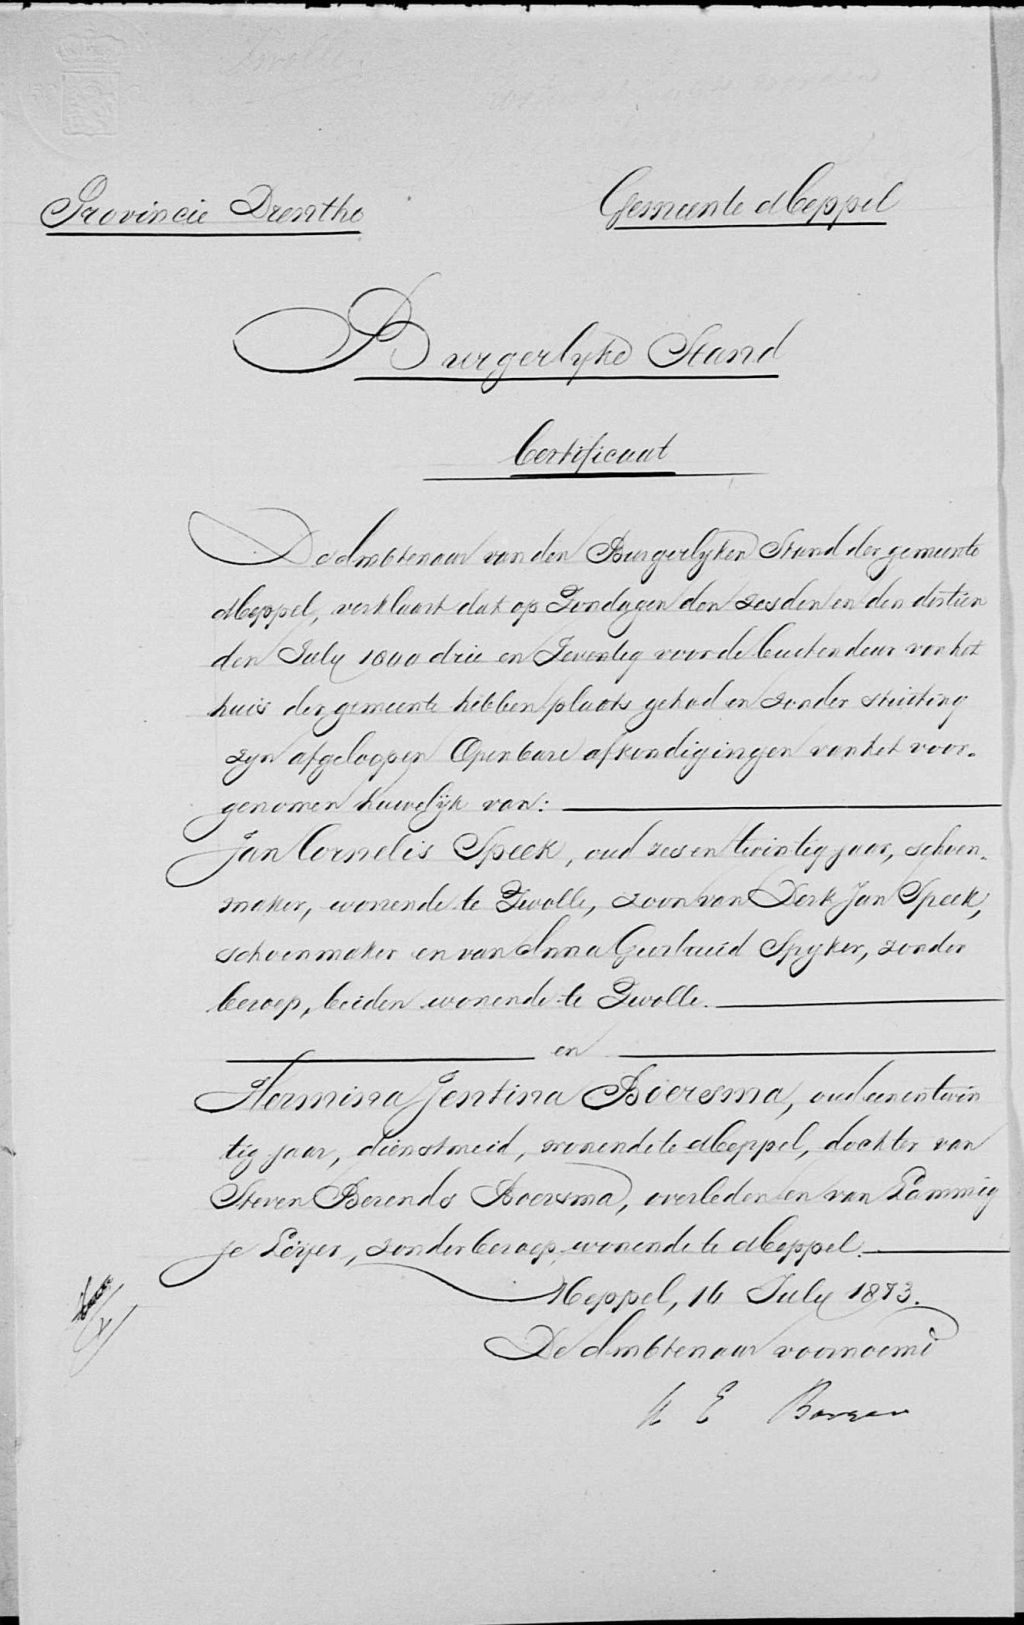 Provincie Drenthe
Gemeente Meppel
Burgerlyke Stand
Certificaat
De Ambtenaar van den Burgerlyken Stand der gemeente
Meppel, verklaart dat op Zondagen den zesden en den dertien
den July 1800 drie en Zeventig voor de buitendeur van het
huis der gemeente hebben plaats gehad en zonder stuiting
zyn afgeloopen Openbare afkondigingen van het voor-
genomen huwelijk van:
Jan Cornelis Speek, oud zes en twintig jaar, schoen-
maker, wonende te Zwolle, zoon van Derk Jan Speek,
schoenmaker en van Anna Geertruid Spyker, zonder
beroep, beiden wonende te Zwolle.
en
Hermina Jentina Boersma, oud eenentwin
tig jaar, dienstmeid, wonende te Meppel, dochter van
Steven Berends Boersma, overleden en van Lammig
je Leijer, zonder beroep, wonende te Meppel.
Meppel, 14 July 1873.
De Ambtenaar voornoemd